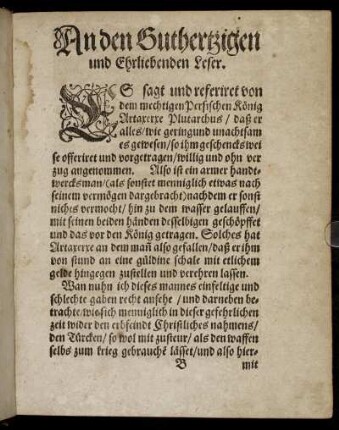 An den Guthertzigen
und Ehrliebenden Leser.
ES sagt und referiret von
dem mechtigen Persischen König
Artaxerxe Plutarchus / daß er
alles / wie gering und unachtsam
es gewesen / so ihm geschencks wei
se offeriret und vorgetragen / willig und ohn ver
zug angenommen. Also ist ein armer handt-
wercksman / (als sonstet menniglich etwas nach
seinem vermögen dargebracht) nachdem er sonst
nichts vermocht / hin zu dem wasser gelauffen /
mit seinen beiden händen desselbigen geschöpffet
und das vor den König getragen. Solches hat
Artaxerxe an dem mañ also gefallen / daß er ihm
von stund an eine güldine schale mit etlichem
gelde hingegen zustellen und verehren lassen.
Wan nuhn ich dieses mannes einfeltige und
schlechte gaben recht ansehe / und darneben be-
trachte / wie sich menniglich in dieser gefehrlichen
zeit wider den erbfeindt Christliches nahmens /
den Türcken / so wol mit zusteur / als den waffen
selbs zum krieg gebrauchē lässet / und also hier-
B mit